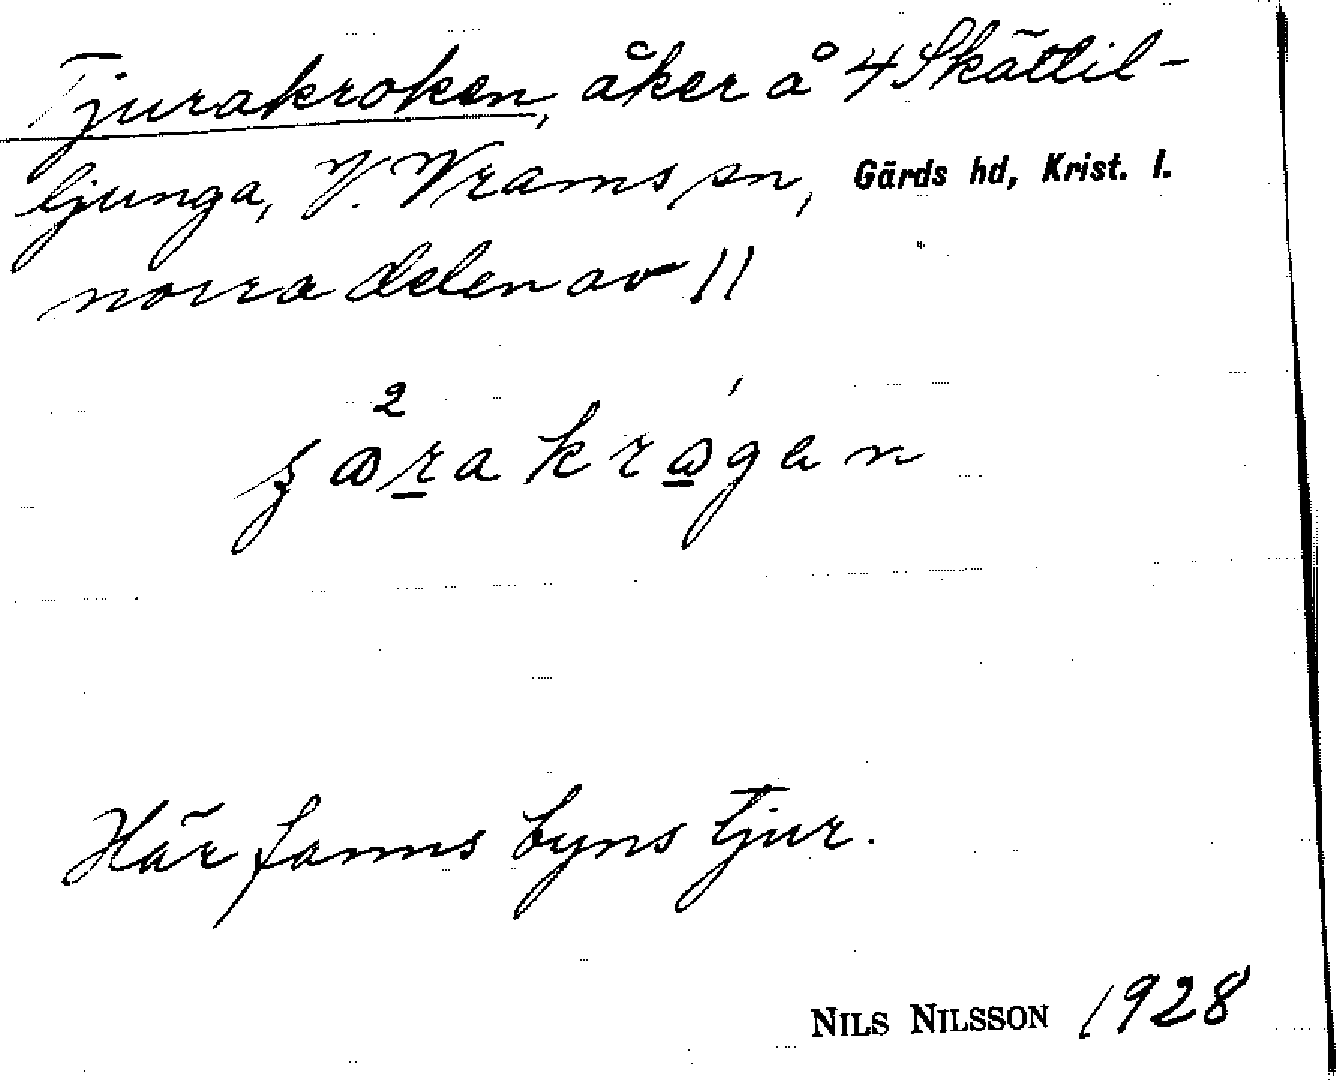 Tjurakroken, åker å 4 Skättil-
ljunga, V. Vrams sn, Gärds hd, Krist. l.
norra delen av 11
Här fanns byns tjur.
NILS NILSSON 1928